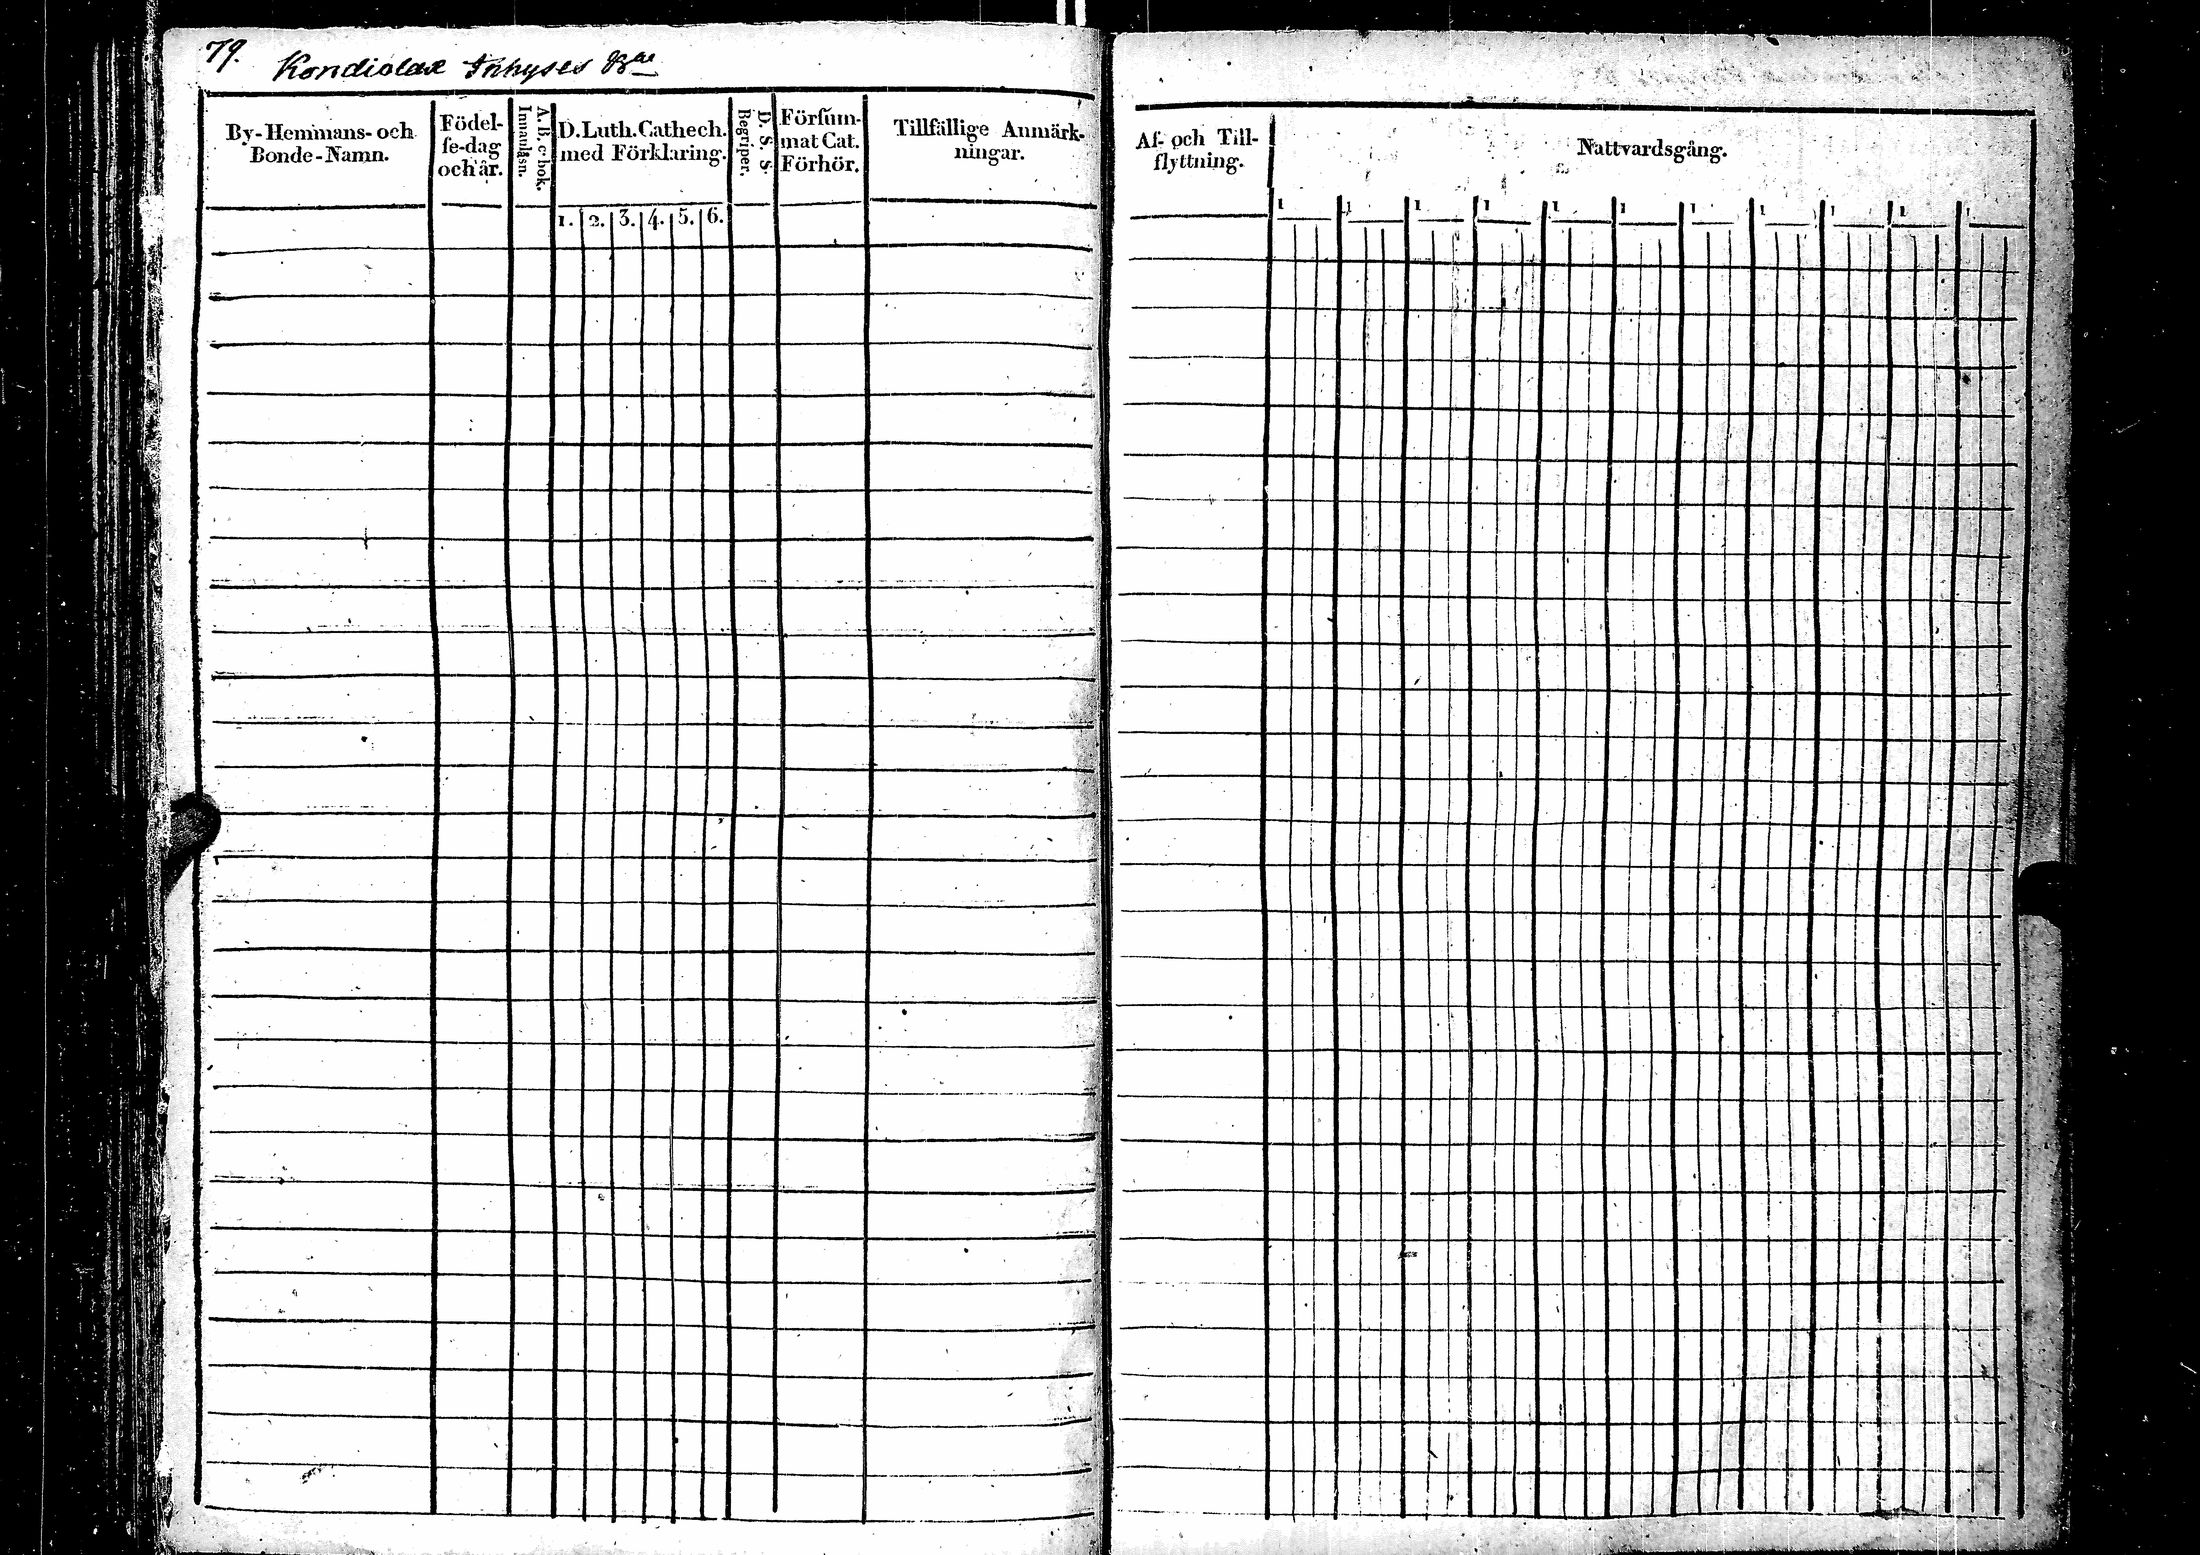 79.
Kondiolax Inhyses
By-Hemmans- och
Bonde-Namn.
Födel-
se-dag
och år.
A. B. c-bok.
Innanläsn.
D. Luth. Cathech.
med Förklaring.
1. 2. 3. 4. 5. 6.
D. S. S.
Begriper.
Försum-
mat Cat.
Förhör.
Tillfällige Anmärk-
ningar.
Af- och Till-
flyttning.
Nattvardsgång.
1 1 1 1 1 1 1 1 1 1 1